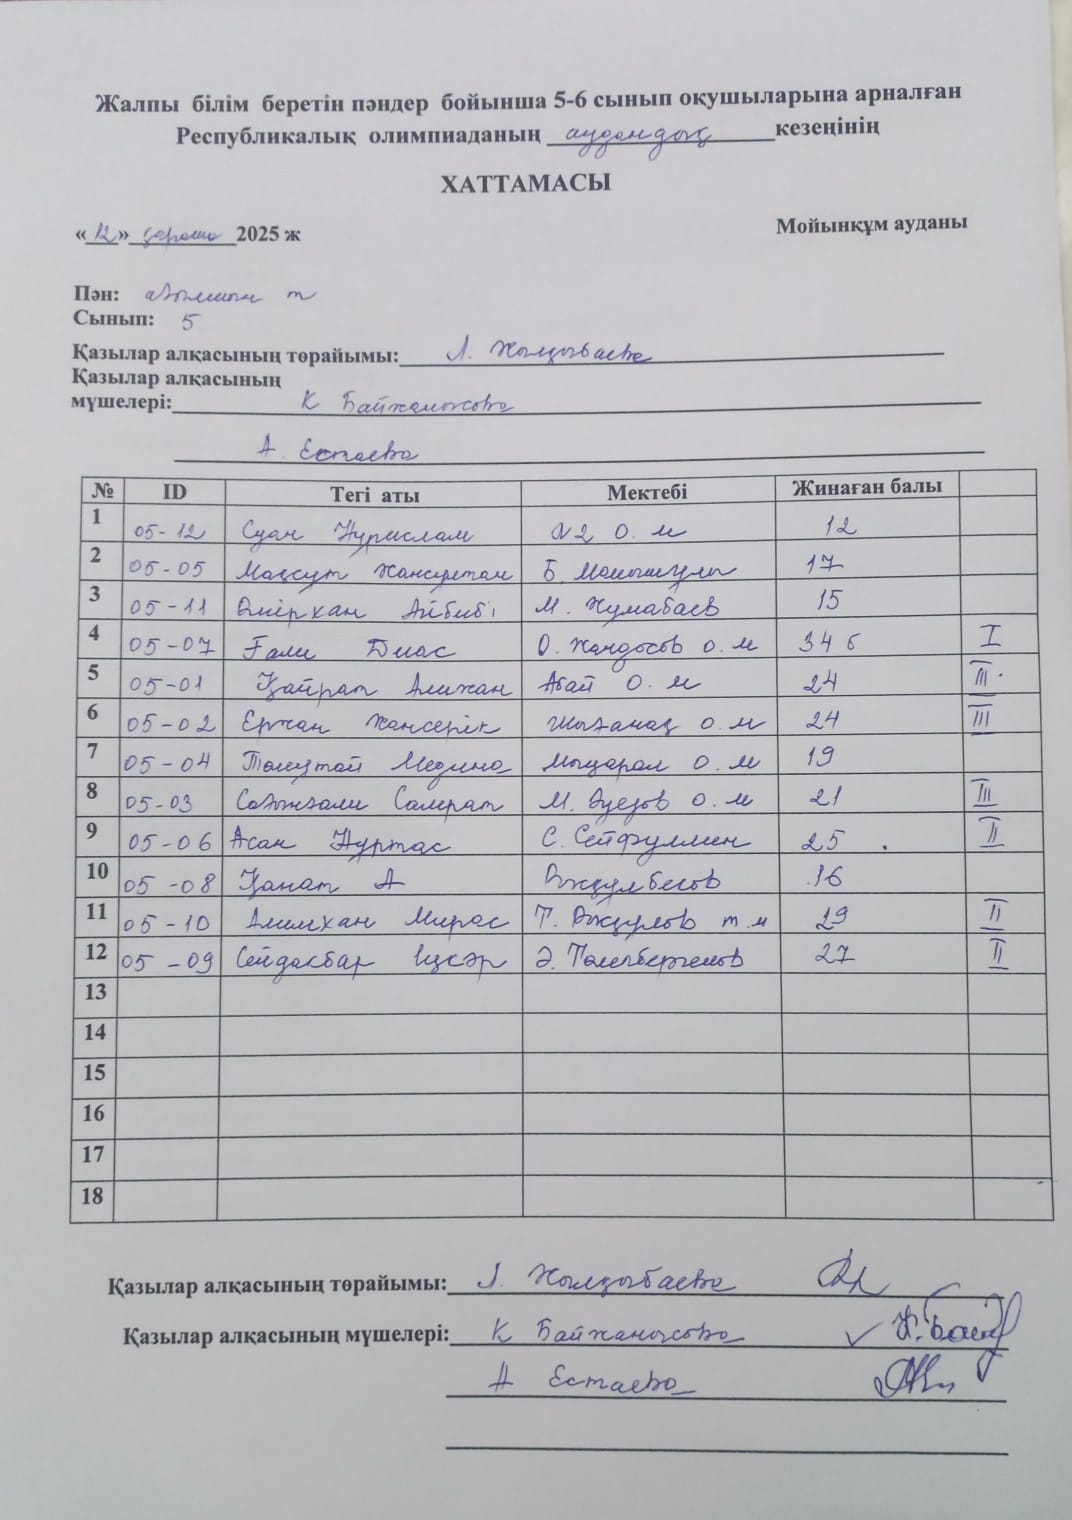 Жалпы білім беретін пәндер бойынша 5-6 сынып оқушыларына арналған
Республикалық олимпиаданың аудандық кезеңінің
ХАТТАМАСЫ
«12» қараша 2025 ж Мойынқұм ауданы
Пән: ағылшын т
Сынып: 5
Қазылар алқасының төрайымы: Л. Жылқыбаева
Қазылар алқасының
мүшелері: К Байжанысова
А. Естаева
№ ID Тегі аты Мектебі Жинаған балы
1 05-12 Суан Нұрислам №2 О. м 12
2 05-05 Мақсұт Жансұлтан Б. Момышұлы 17
3 05-11 Өмірхан Айбибі М. Жұмабаев 15
4 05-07 Ғали Диас О. Жандосов о. м 34 б I
5 05-01 Қайрат Алихан Абай О. м 24 III
6 05-02 Ержан Жансерік Шығанақ о. м 24 III
7 05-04 Төлеутай Медина Мыңарал о. м 19
8 05-03 Сағынғали Самрат М. Әуезов о. м 21 III
9 05-06 Асан Нұртас С. Сейфуллин 25 II
10 05-08 Қанат А 16
11 05-10 Алимхан Мирас Т. т. м 29 II
12 05-09 Сейдакбар Ә. 27 II
13
14
15
16
17
18
Қазылар алқасының төрайымы: Л. Жылқыбаева
Қазылар алқасының мүшелері: К Байжанысова К. Бай
А Естаева